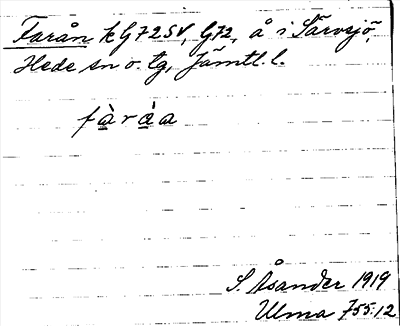 Farån k G72SV, G72, å i Särvsjö,
Hede sn o. tg, Jämtl. l.
fàràa
S. Åsander 1919
Ulma 755:12